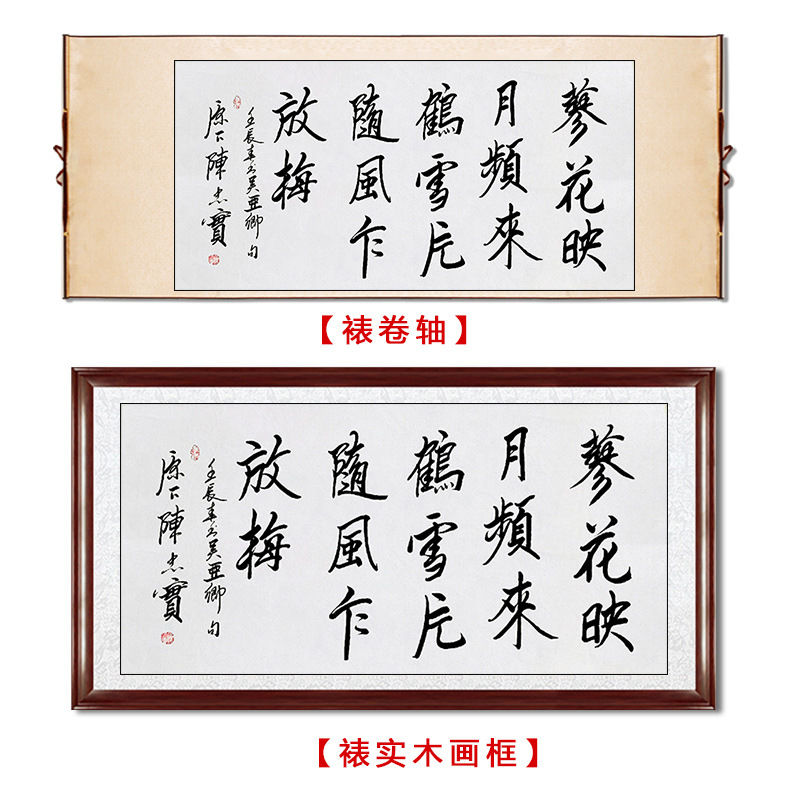 蓼花映
月頻來
鶴雪片
隨風乍
放梅
壬辰春書吳亞卿句
原下陳忠實
【裱卷轴】
蓼花映
月頻來
鶴雪片
隨風乍
放梅
壬辰春書吳亞卿句
原下陳忠實
【裱实木画框】